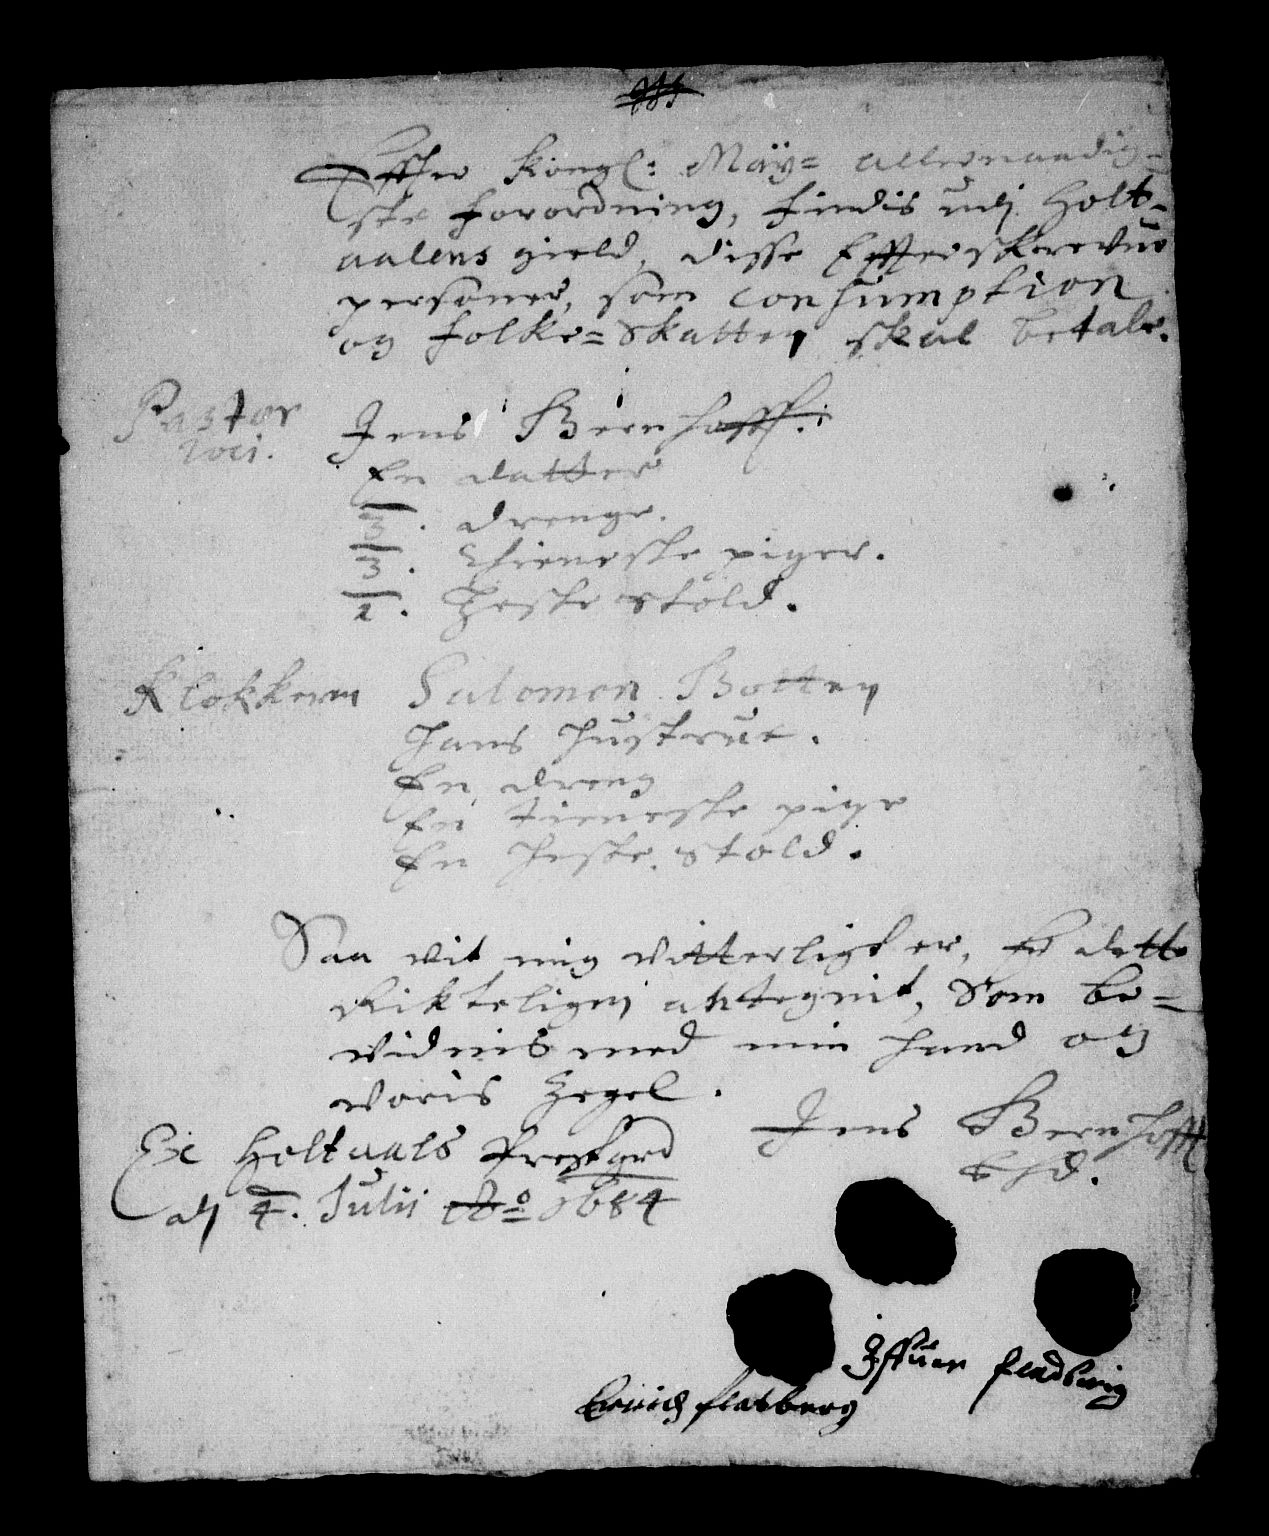 Effter Kongl: Maÿ= allernaadig=
ste forordning, findis udj Holt=
aalens gield, disse Effterskrevne
personer, som Consumption
og folke=Skatten skal betale.
Pastor loci. Jens Bernhofft:
En datter
3. drenge.
3. thieneste piger.
1. Heste stold.
Klokkeren Salomon Botten
Hans hustrue.
En dreng
En tieneste pige
En heste stold.
Saa vit mig vitterligt er, Er dette
Rikteligen antegnit, Som be=
vidnis med min haand og
voris Zegel.
Jens Bernhofft
Ehd.
Ex Holtaals Prestgrd
adj 4. Julij Ao 1684
Iffuer fladberig
Erich fladberg